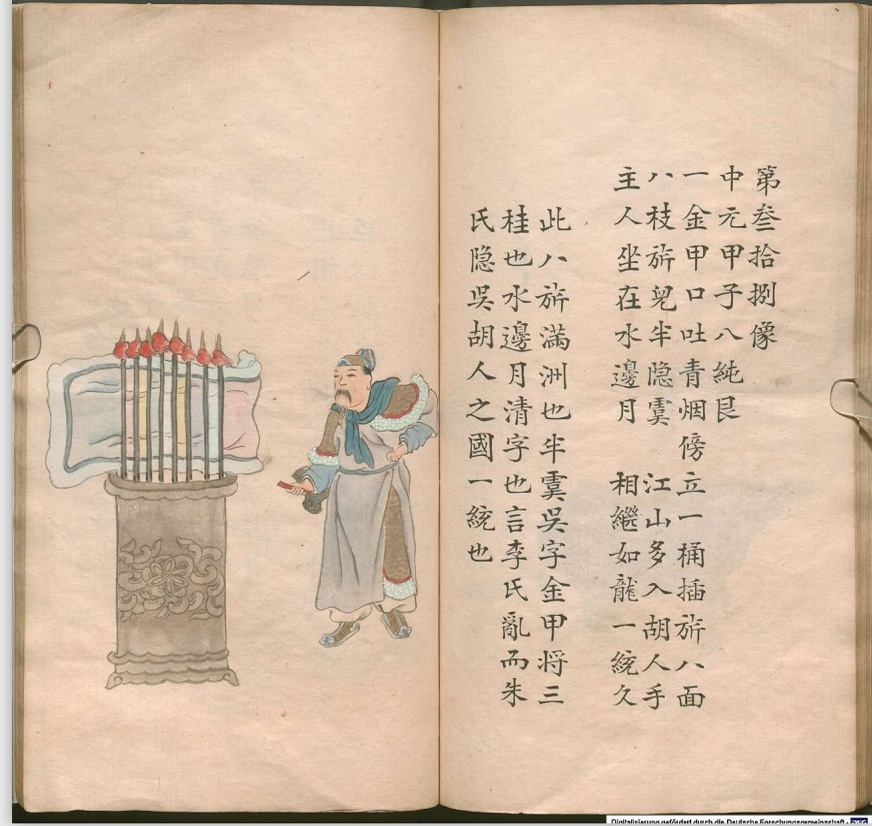 第叁拾捌像
中元甲子八純艮
一金甲口吐青烟傍立一桶插旂八面
八枝旂兒半隐 江山多入胡人手
主人坐在水邊月 相繼如龍一統久
此八旂滿洲也半吳字金甲将三
桂也水邊月清字也言李氏亂而朱
氏隐吳胡人之國一統也
Digitalisierung gefördert durch die Deutsche Forschungsgemeinschaft - DFG